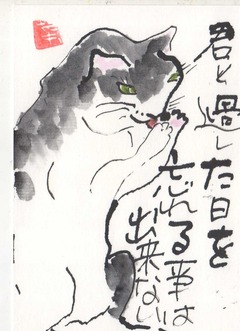 君と過した日を
忘れる事は
出来ない